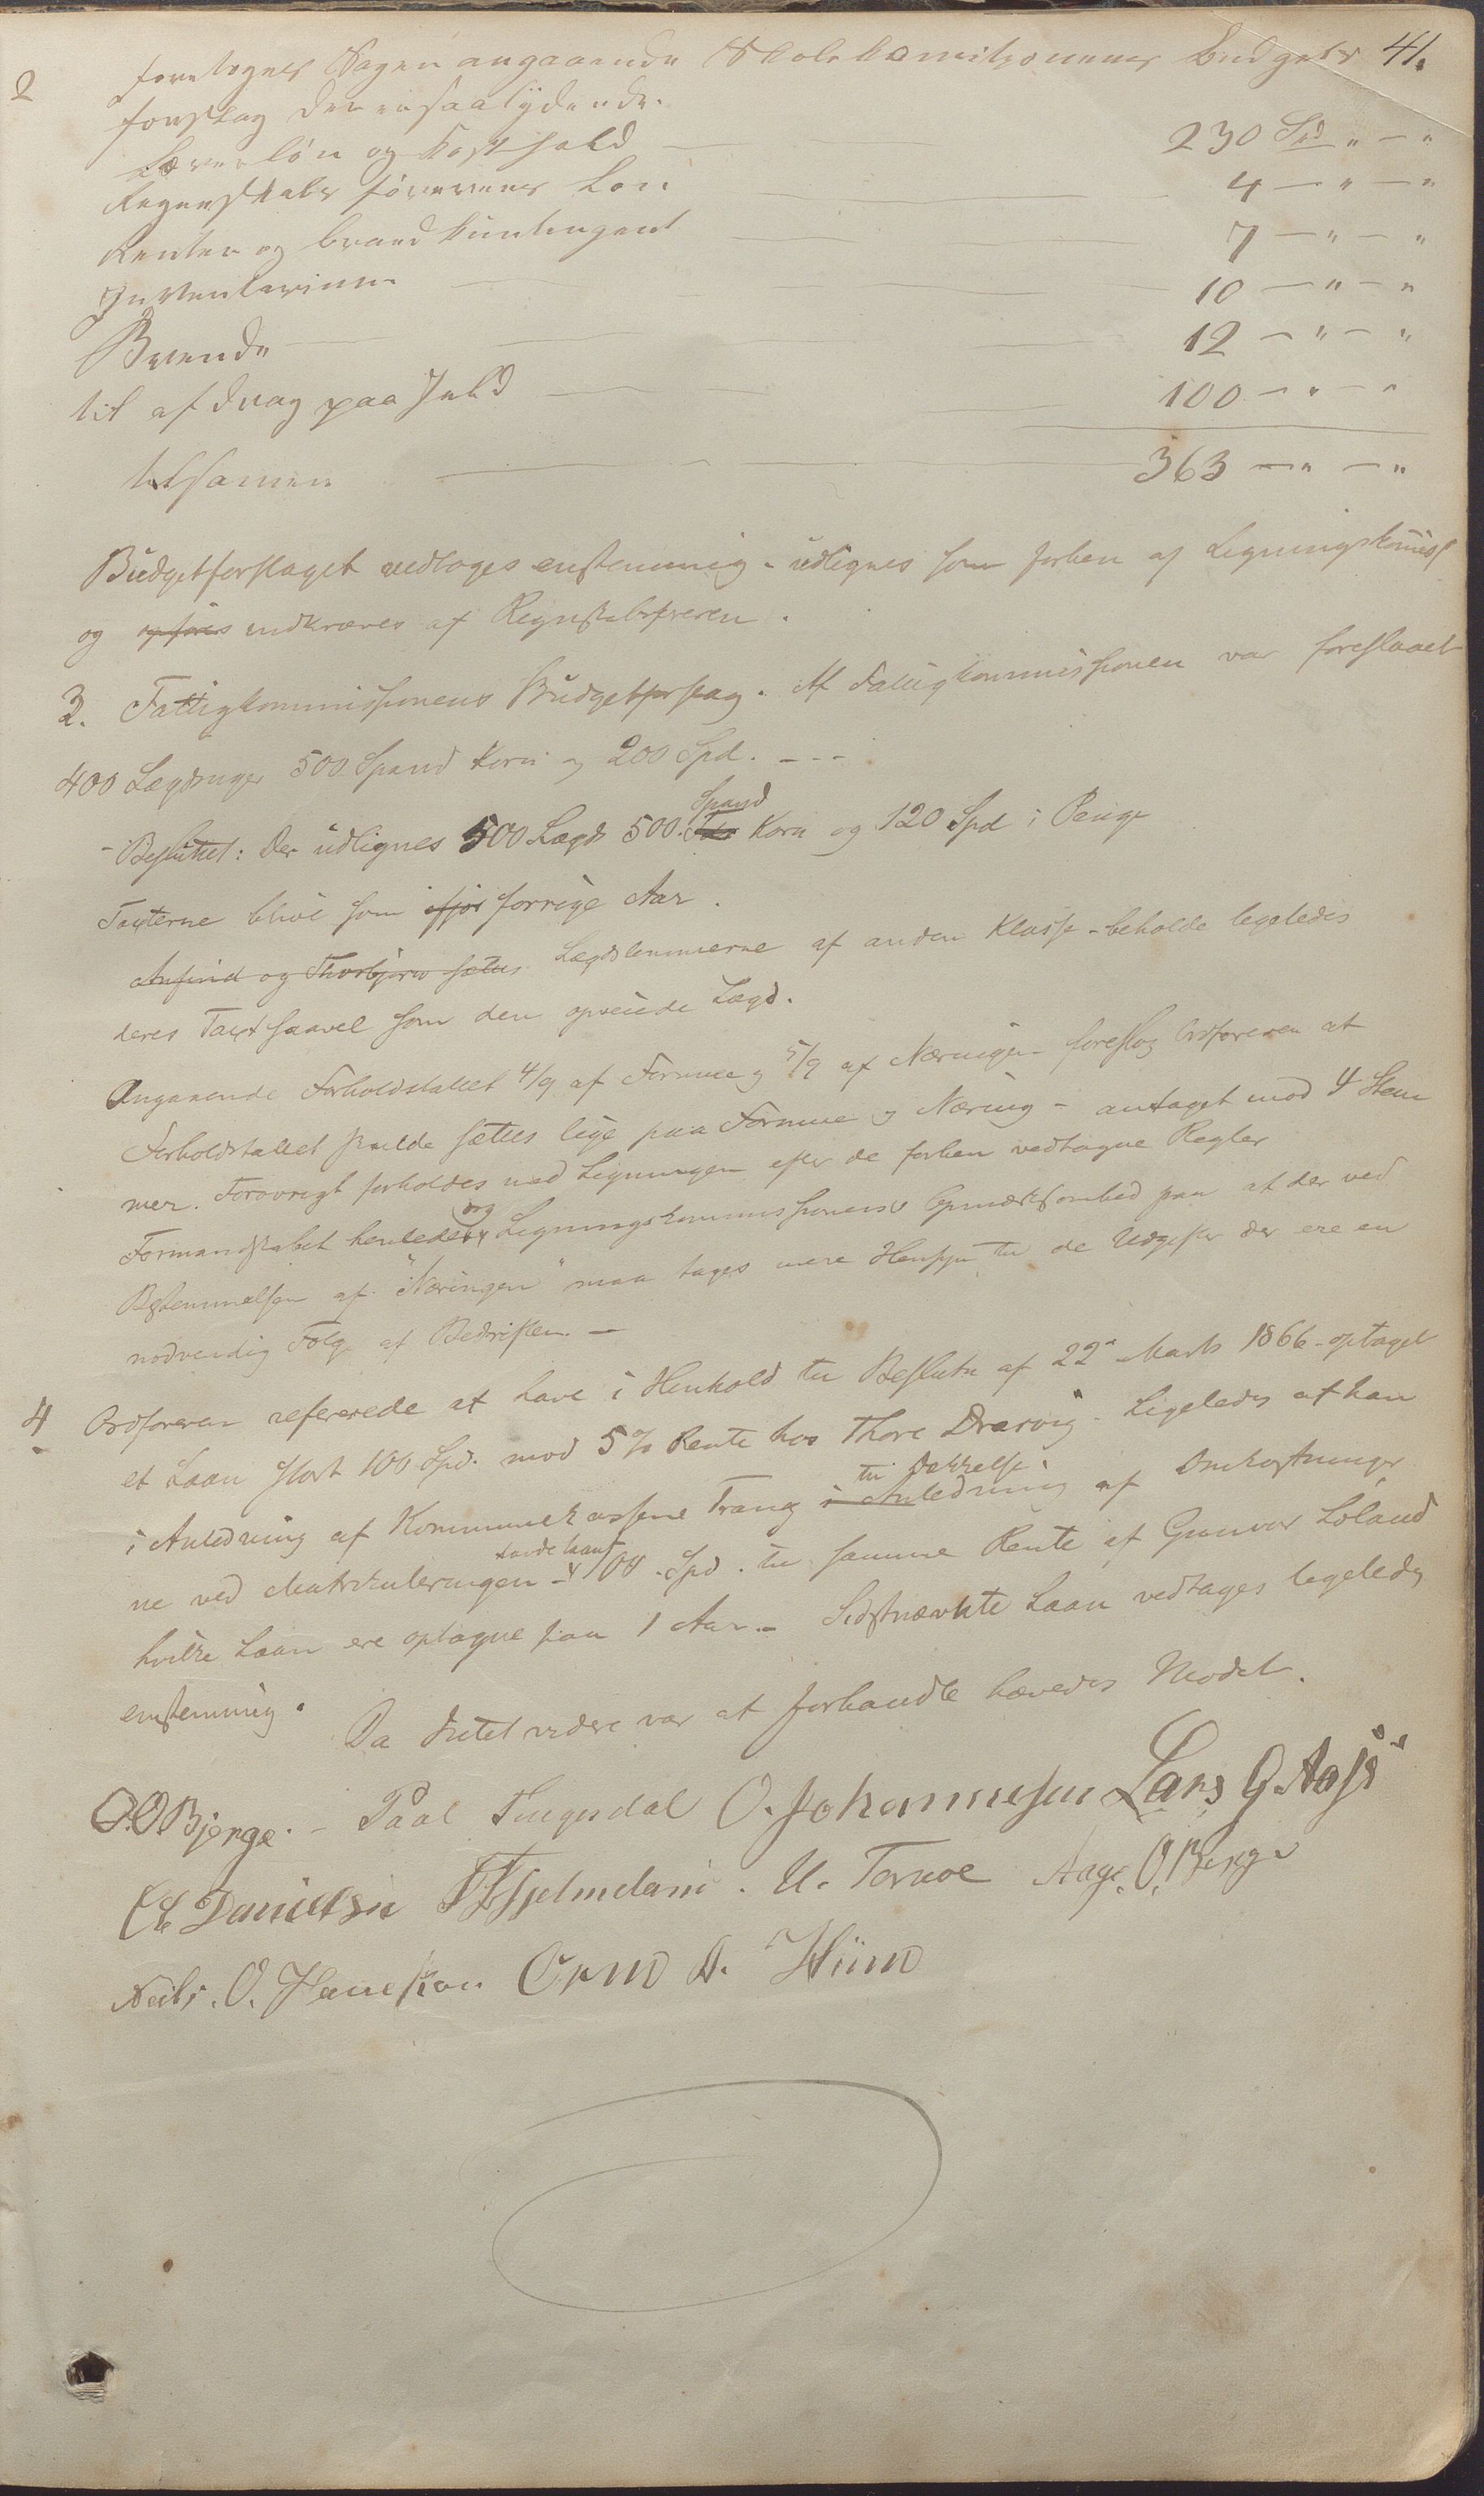 41.
2 foretoges Sagen angaaende Skolekomisjonens Budgets
forslag der er saalydende.
Lærerløn og Kosthold — 230 Spd " — "
Regenskabs førerens Løn — 4 — " — "
Renter og brandkuntingent — 7 — " — "
Inventarium — 10 — " — "
Brende — 12 — " — "
til afdrag paa Jeld — 100 — " — "
tilsamen — 363 — " — "
Budgetforslaget vedtoges enstemmig - udlignes som forhen af Ligningskomiss
og opføres indkræves af Regnskabsføreren.
3. Fattigkommissionens Budgetforslag. Af Fattigkommissionen var foreslaaet
400 Lægdsuger 500 Spand Korn og 200 Spd. - - -
- Besluttet: Der udlignes 500 Lægds 500 Tdr Spand Korn og 120 Spd i Penge
Taxterne blive som ifjor forrige Aar.
Anfind og Thorbjørn sættes Lægdslemmerne af anden Klasse - beholde ligeledes
deres Taxt saavel som den opreiede Lægd.
Angaaende Forholdstallet 4/9 af Formue og 5/9 af Næringen foreslog Ordføreren at
Forholdstallet skulde sættes lige paa Formue og Næring - antaget mod 4 Stem
mer. Forøvrigt forholdes med Ligningen efter de forhen vedtagne Regler
Formandskabet henleder og Ligningskommissionens Opmærksomhed paa at der ved
Bestemmelsen af "Næringen" maa tages mere Hensyn til de Udgifter der ere en
nødvendig Følge af Bedriften. —
4 Ordføreren refererede at have i Henhold til Beslutn af 22de Marts 1866 - optaget
et Laan stort 100 Spd. mod 5% Rente hos Thore Drarvig - Ligeledes at han
i Anledning af Kommunekassens Trang i Anledning til Dækkelse af Omkostninger
ne ved Matrikuleringen - havde laant 100 Spd. til samme Rente af Gunvor Løland
hvilke Laan ere optagne paa 1 Aar. - Sidstnævnte Laan vedtages ligeledes
enstemmig.
Da Intet videre var at forhandle hævedes Modet.
O.O. Bjerge. - Paal Tingsdal O. Johannesen Lars G. Aase
Ch Danielsen T Hjelmeland. U. Tornoe Aage O. Berge
Neils. O. Hauskon Orm D. Hiim